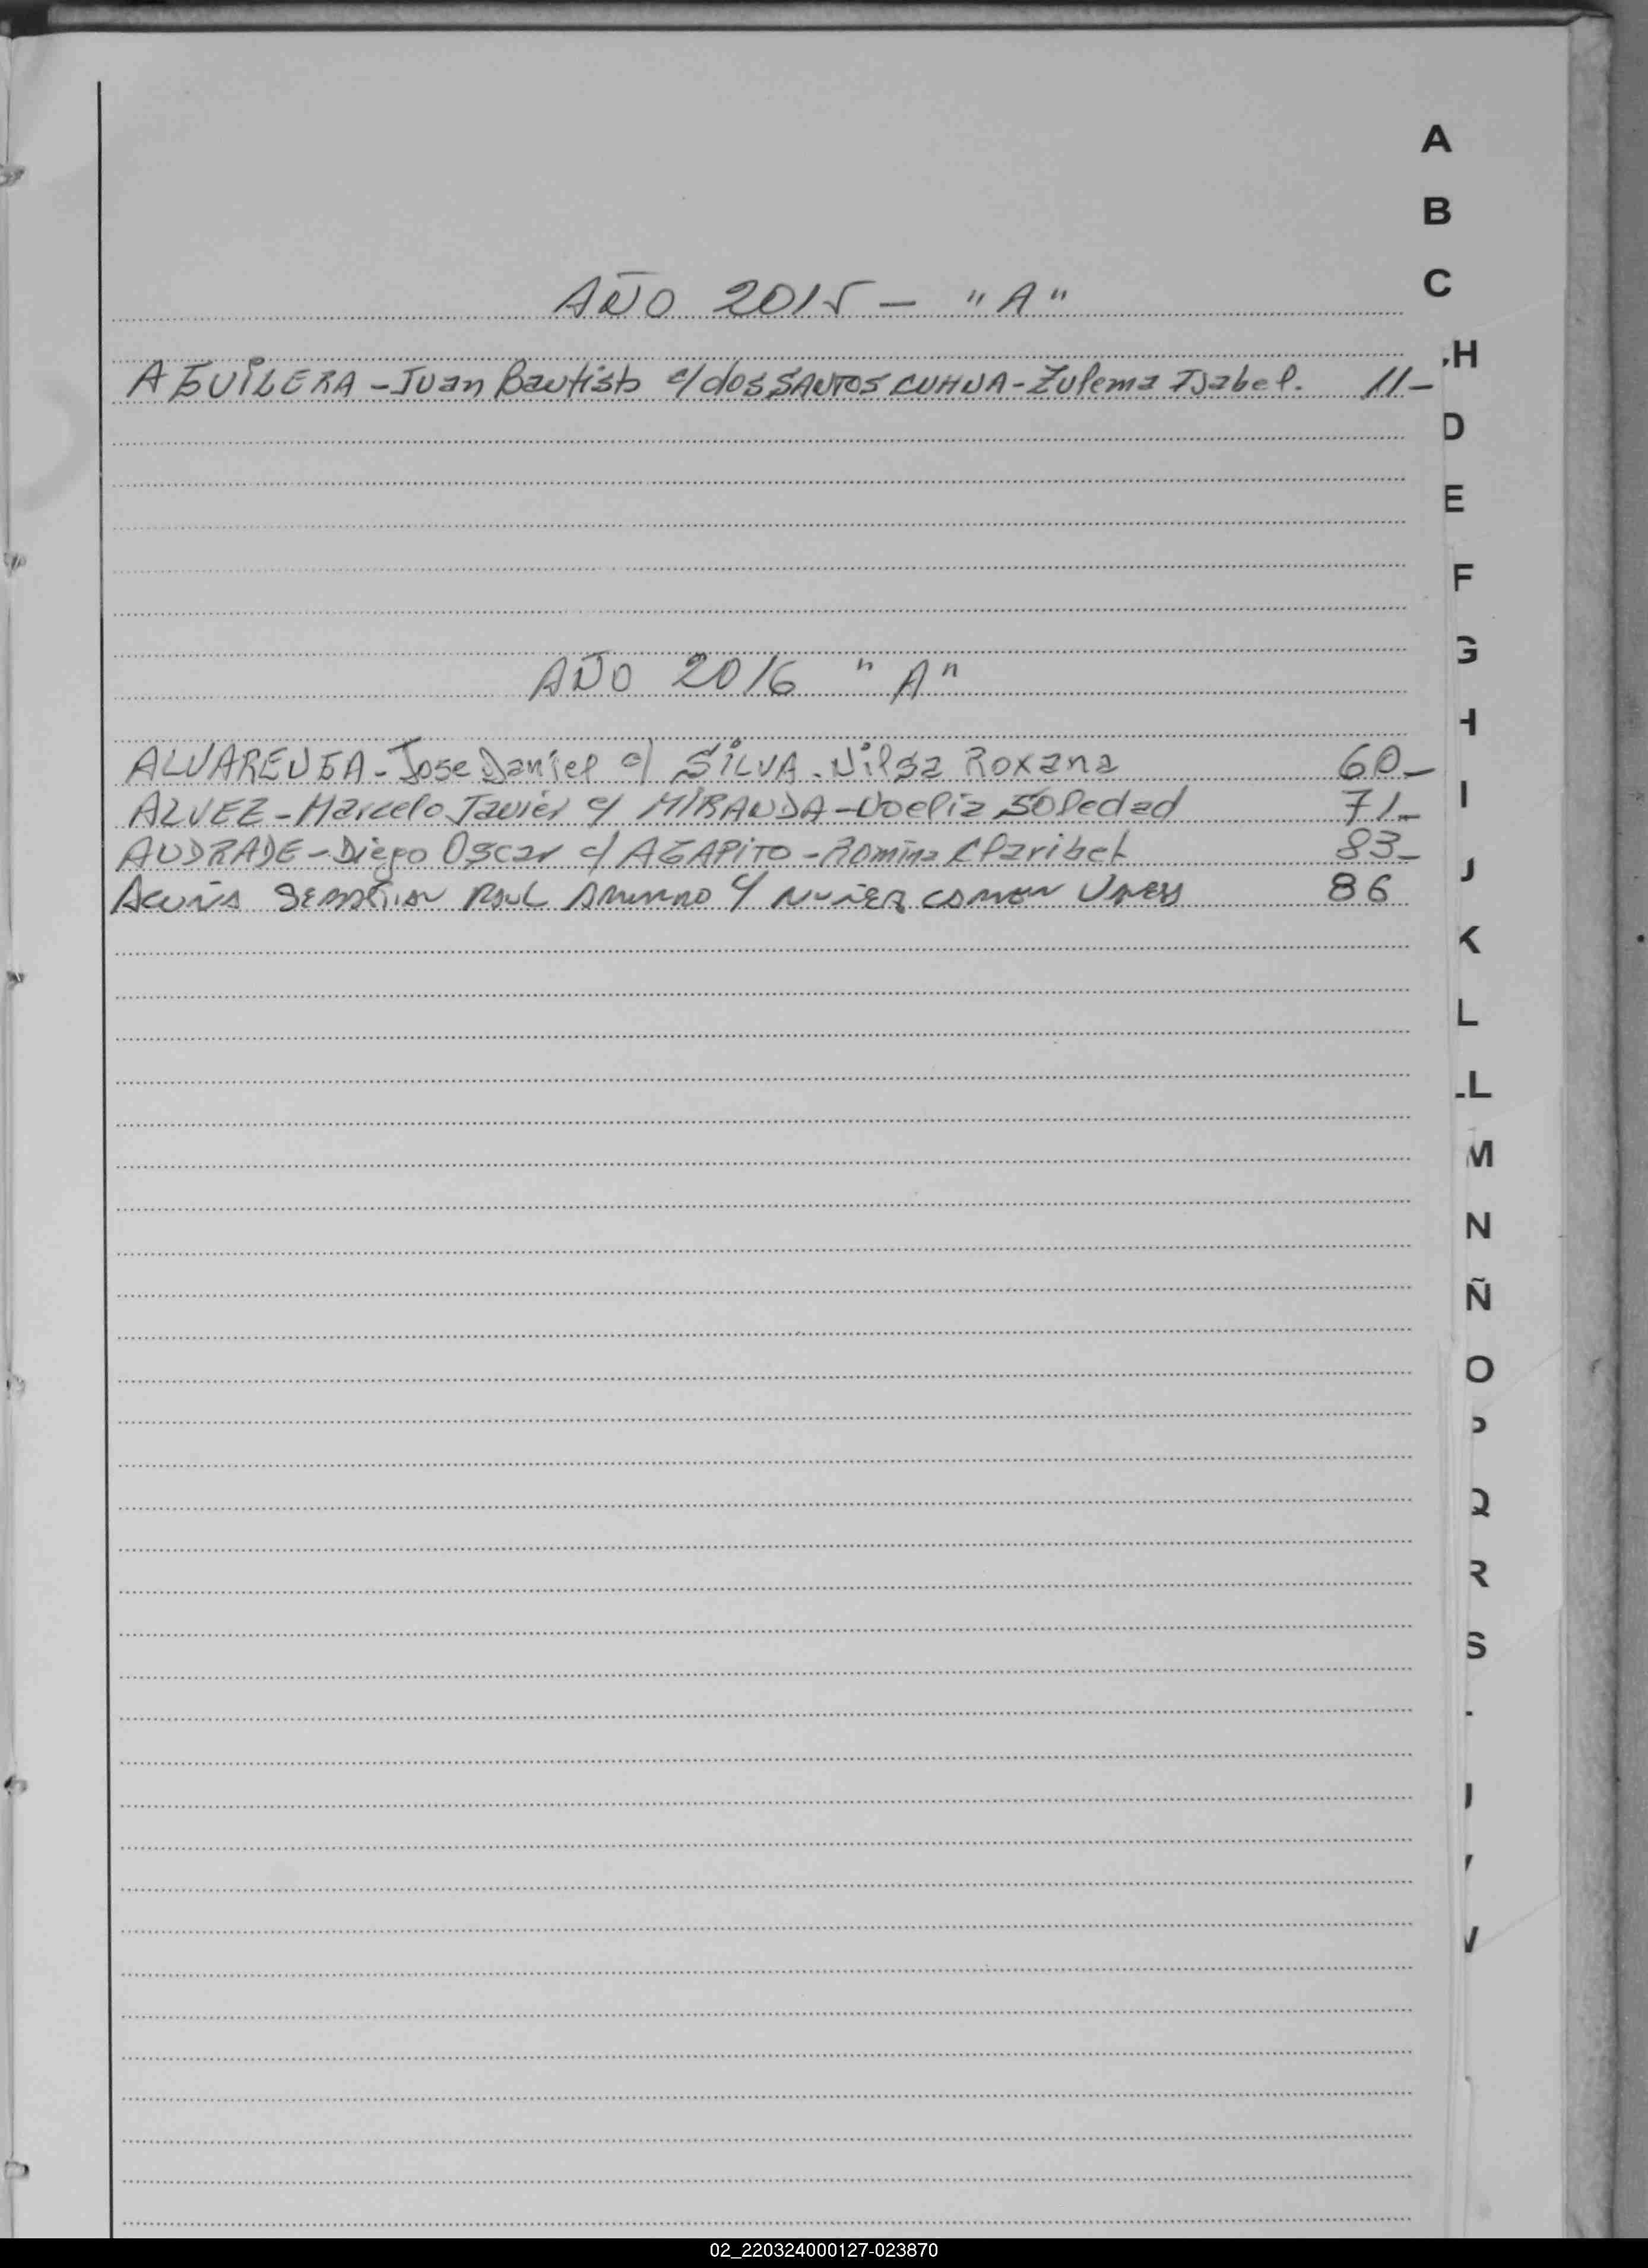 AÑO 2015 - "A"
AGUILERA - Juan Bautista c/ dos SANTOS CUNHA - Zulema Isabel. 11-
AÑO 2016 "A"
ALVARENGA - Jose Daniel c/ SILVA - Nilsa Roxana 60-
ALVEZ - Marcelo Javier c/ MIRANDA - Noelia Soledad 71-
ANDRADE - Diego Oscar c/ AGAPITO - Romina Claribel 83-
Acuña Sebastian Raul c/ Nuñez 86
A
B
C
CH
D
E
F
G
H
I
J
K
L
LL
M
N
Ñ
O
P
Q
R
S
02_220324000127-023870